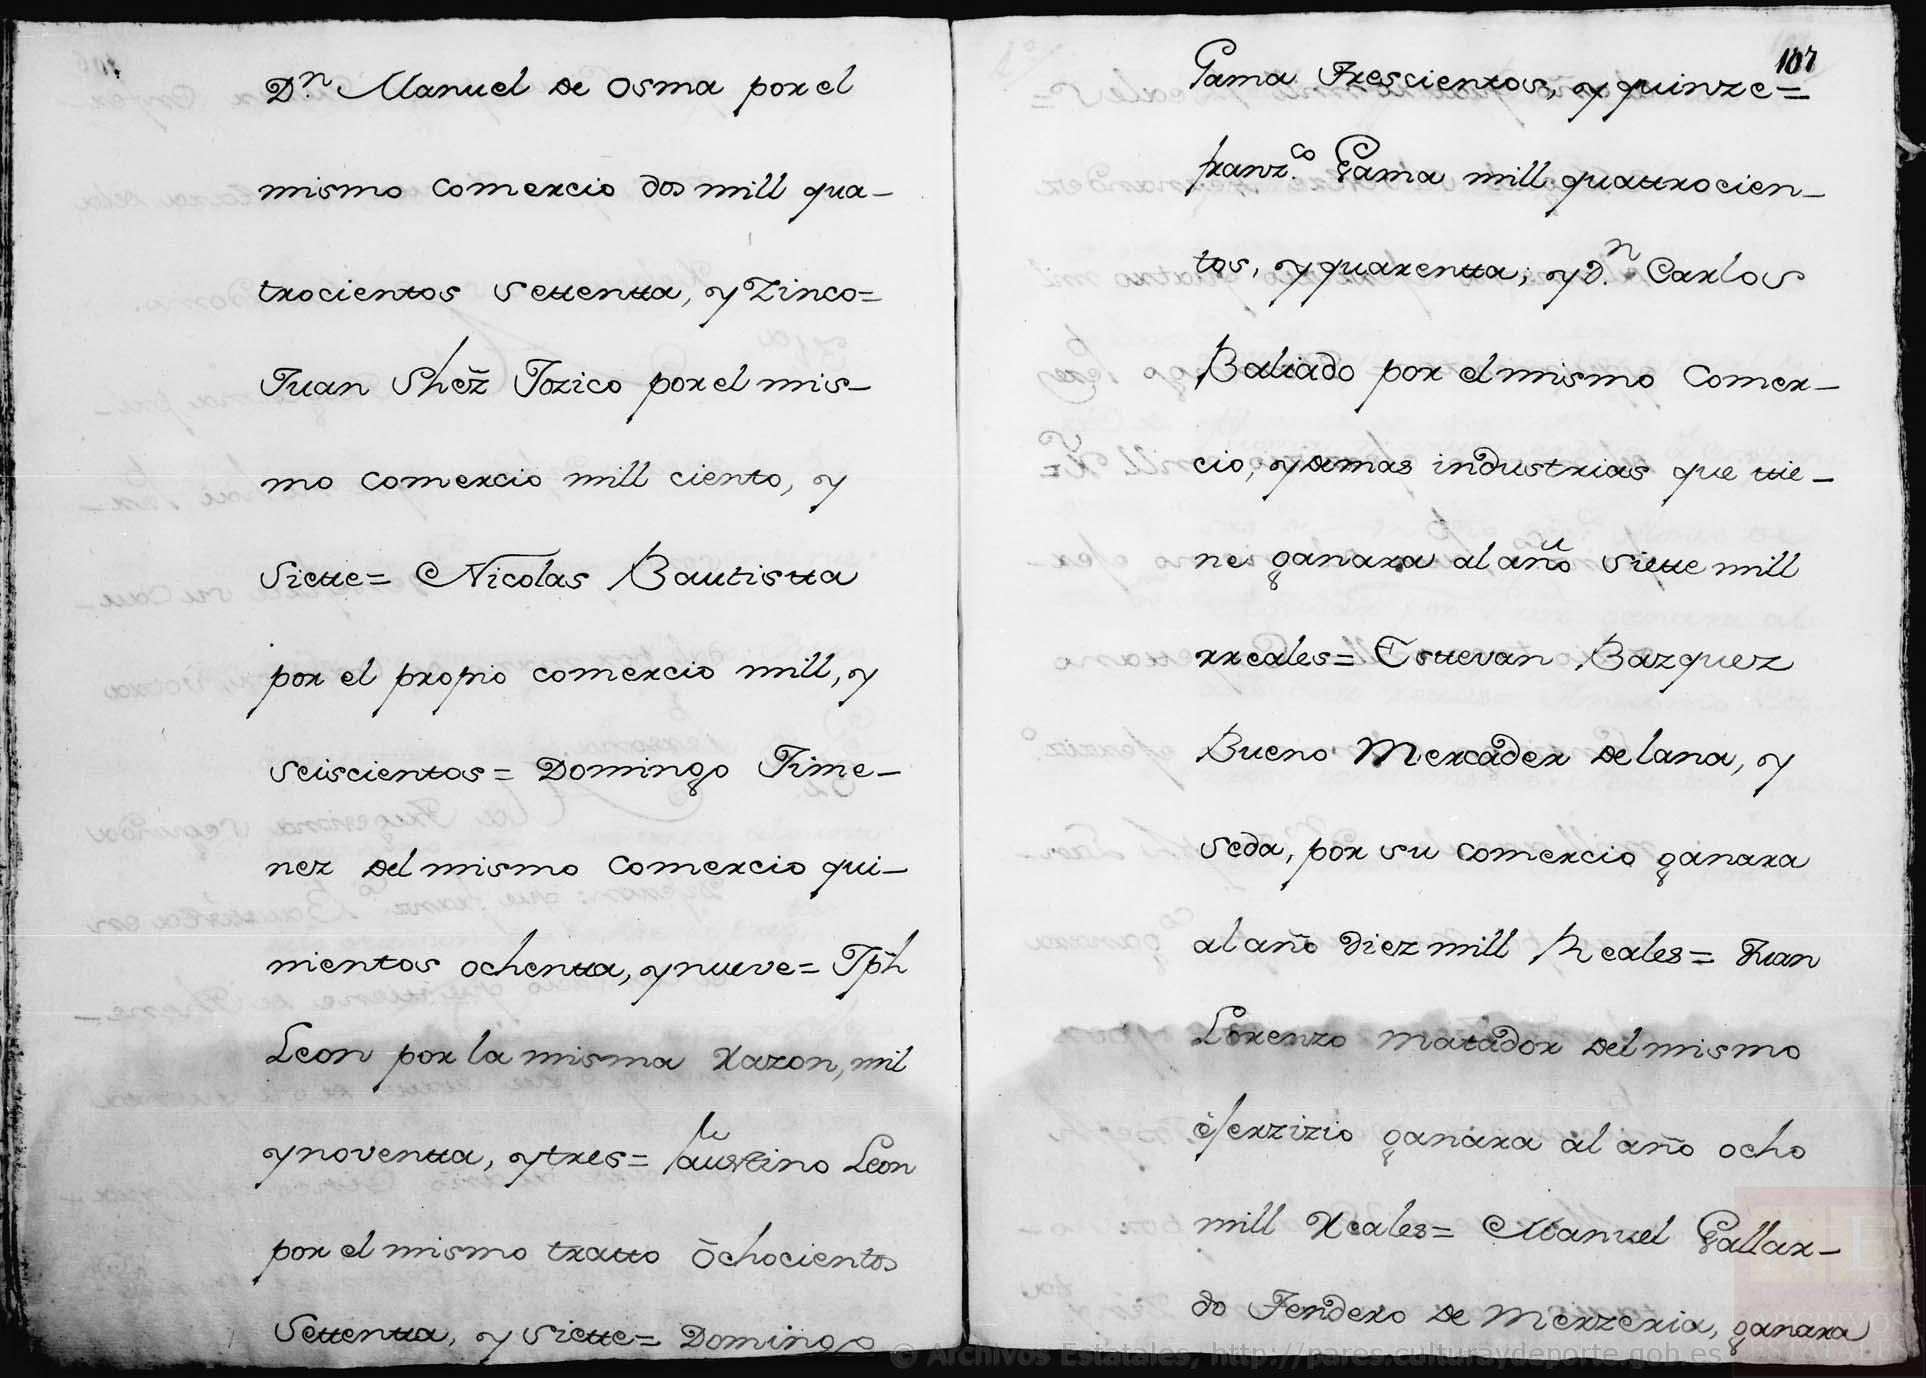 Dn. Manuel de Osma por el
mismo comercio dos mill qua-
trocientos settentta, y Zinco=
Juan Shez Tozico por el mis-
mo comercio mill ciento, y
Siette= Nicolas Bautistta
por el propio comercio mill, y
seiscientos= Domingo Jime-
nez del mismo comercio qui-
nientos ochentta, y nueve= Jph
Leon por la misma Razon, mil
y noventta, y tres= faustino Leon
por el mismo tratto Ochocientos
Settentta, y Siette= Domingo
107
Gama Trescientos, y quinze=
franzco. Gama mill quattrocien-
tos, y quarentta; y Dn. Carlos
Baliado por el mismo Comer-
cio, y demas industrias que ttie-
ne ganara al año Siette mill
rreales= Esttevan Bazquez
Bueno Mercader de lana, y
seda, por su comercio ganara
al año diez mill Reales= Juan
Lorenzo Matador del mismo
ejerzizio ganara al año ocho
mill Reales= Manuel Gallar-
do Tendero de Merzeria, ganara
© Archivos Estatales, http://pares.culturaydeporte.gob.es